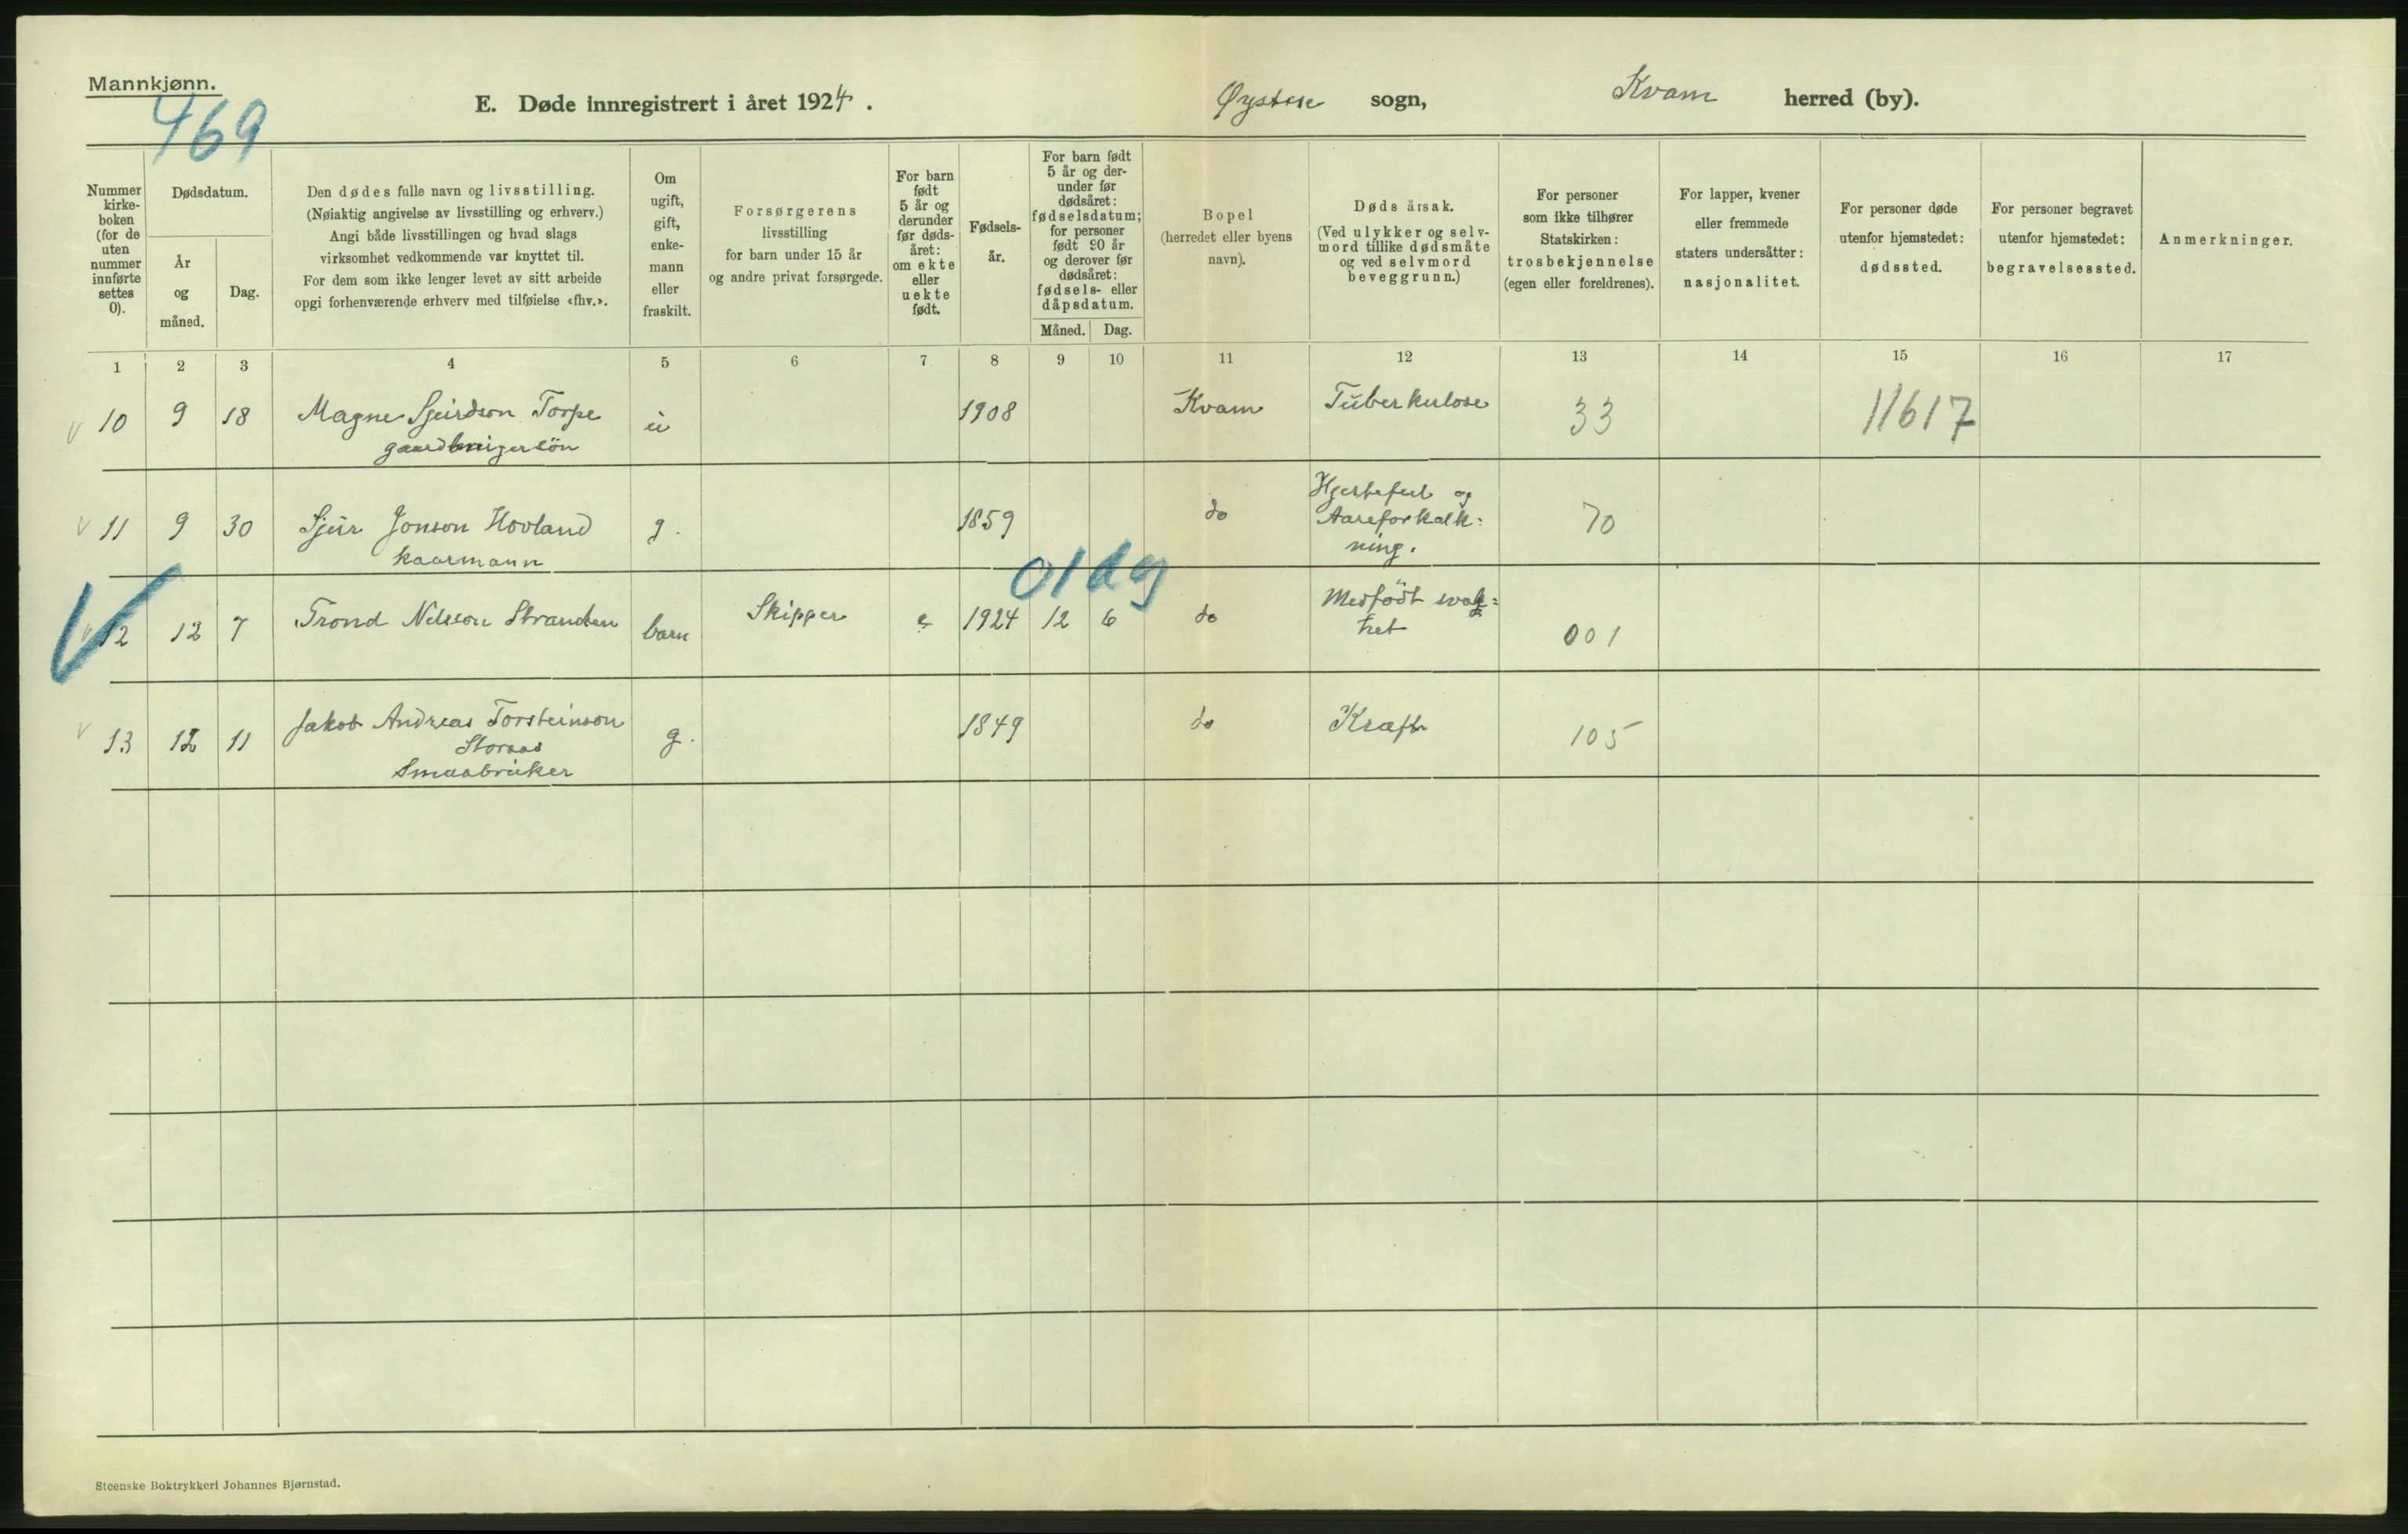 Mannkjønn.
469
E. Døde innregistrert i året 1924.
Øystese sogn, Kvam herred (by).
Nummer
kirke-
boken
(for de
uten
nummer
innførte
settes
0).
Dødsdatum.
År
og
måned.
Dag.
Den dødes fulle navn og livsstilling.
(Nøiaktig angivelse av livsstilling og erhverv.)
Angi både livsstillingen og hvad slags
virksomhet vedkommende var knyttet til.
For dem som ikke lenger levet av sitt arbeide
opgi forhenværende erhverv med tilføielse «fhv.».
Om
ugift,
gift,
enke-
mann
eller
fraskilt.
Forsørgerens
livsstilling
for barn under 15 år
og andre privat forsørgede.
For barn
født
5 år og
derunder
før døds-
året:
om ekte
eller
uekte
født.
Fødsels-
år.
For barn født
5 år og der-
under før
dødsåret:
fødselsdatum;
for personer
født 90 år
og derover før
dødsåret:
fødsels- eller
dåpsdatum.
Måned. Dag.
Bopel
(herredet eller byens
navn).
Dødsårsak.
(Ved ulykker og selv-
mord tillike dødsmåte
og ved selvmord
beveggrunn.)
For personer
som ikke tilhører
Statskirken:
trosbekjennelse
(egen eller foreldrenes).
For lapper, kvener
eller fremmede
staters undersåtter:
nasjonalitet.
For personer døde
utenfor hjemstedet:
dødssted.
For personer begravet
utenfor hjemstedet:
begravelsessted.
Anmerkninger.
1 2 3 4 5 6 7 8 9 10 11 12 13 14 15 16 17
v 10 9 18 Magne Sjurdson Torpe u 1908 Kvam Tuberkulose 33 11617
gaardbrugersön
v 11 9 30 Sjur Jonson Hovland g. 1859 do Hjertefeil og 70
Aareforkalk=
kaarmann
ning.
01 dg
V 12 12 7 Trond Nilsson Stranden barn Skipper e 1924 12 6 do Medfödt svak= 001
het
v 13 12 11 Jakob Andreas Torsteinson g. 1849 do Kræft 105
Storaas
Smaabruker
Steenske Boktrykkeri Johannes Bjørnstad.